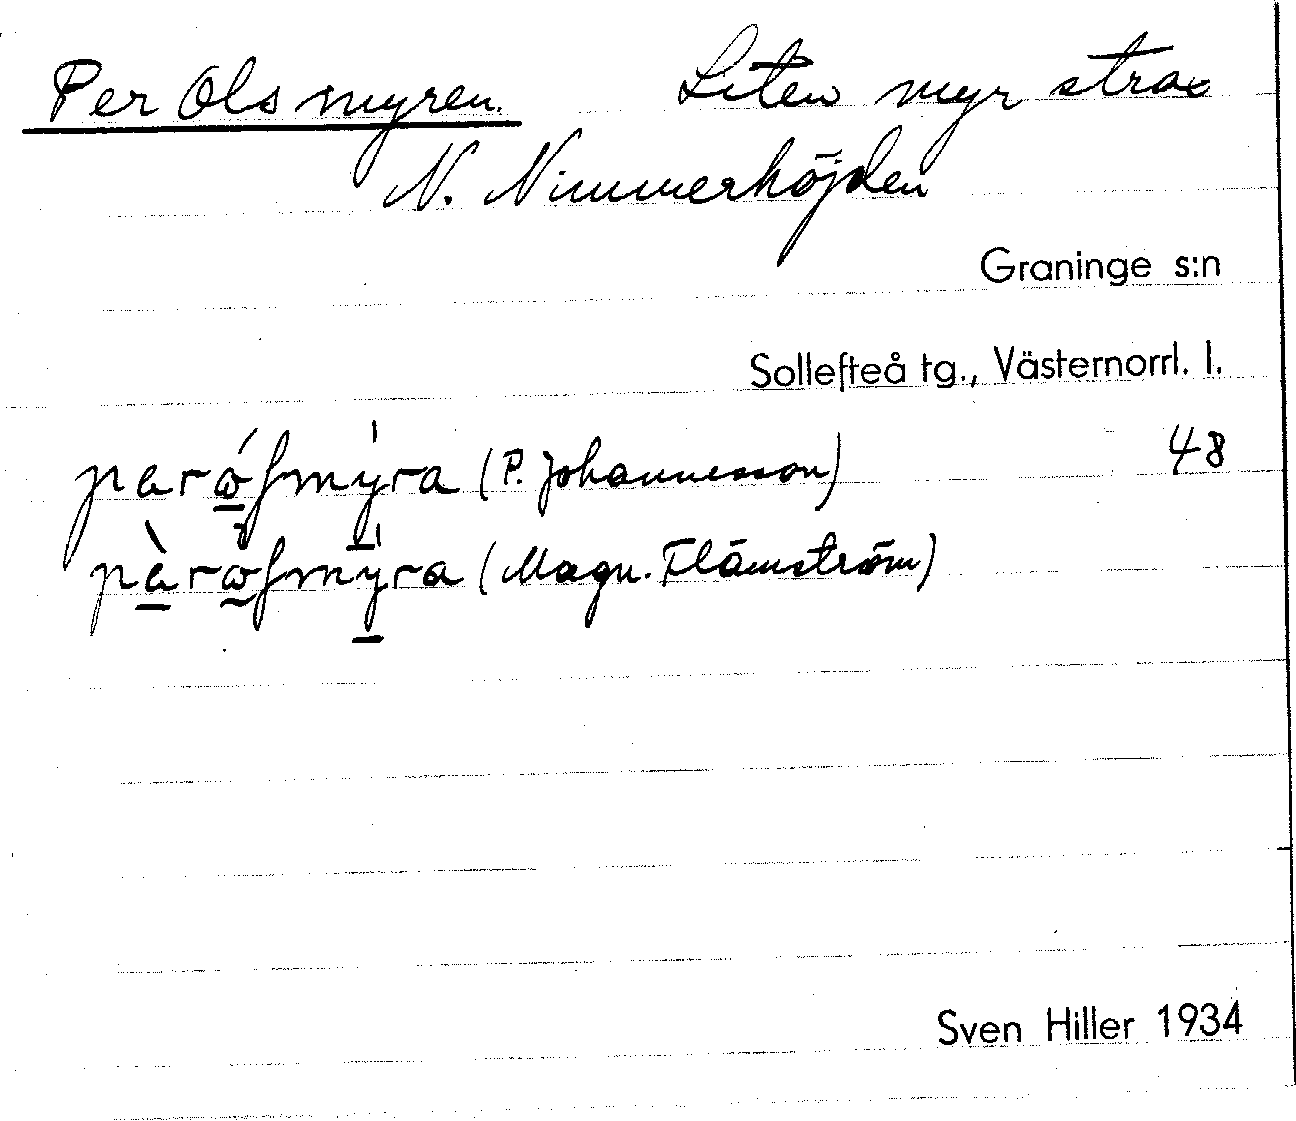 Per Olsmyren. Liten myr strax
N. Nimmerhöjden
Graninge s:n
Sollefteå tg., Västernorrl. l.
(P. Johannesson) 48
(Magn. Flämström)
Sven Hiller 1934